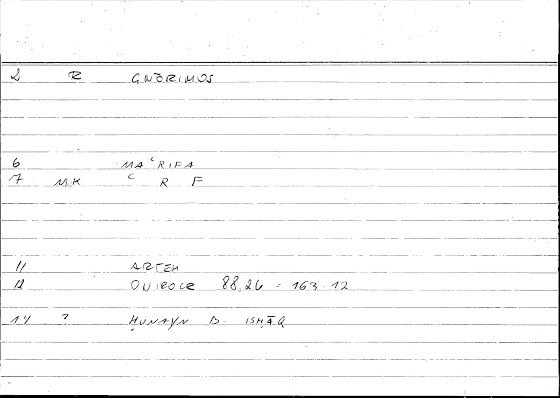 2 R GNŌRIMOS
6 MAʿRIFA
7 MK ʿ R F
11 ARTEM
12 ONIROCR 88,26 = 163.12
14 ? ḤUNAYN B. ISḤĀQ